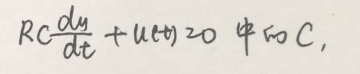 RC\frac{du}{dt}+u(t)=0 中的C,